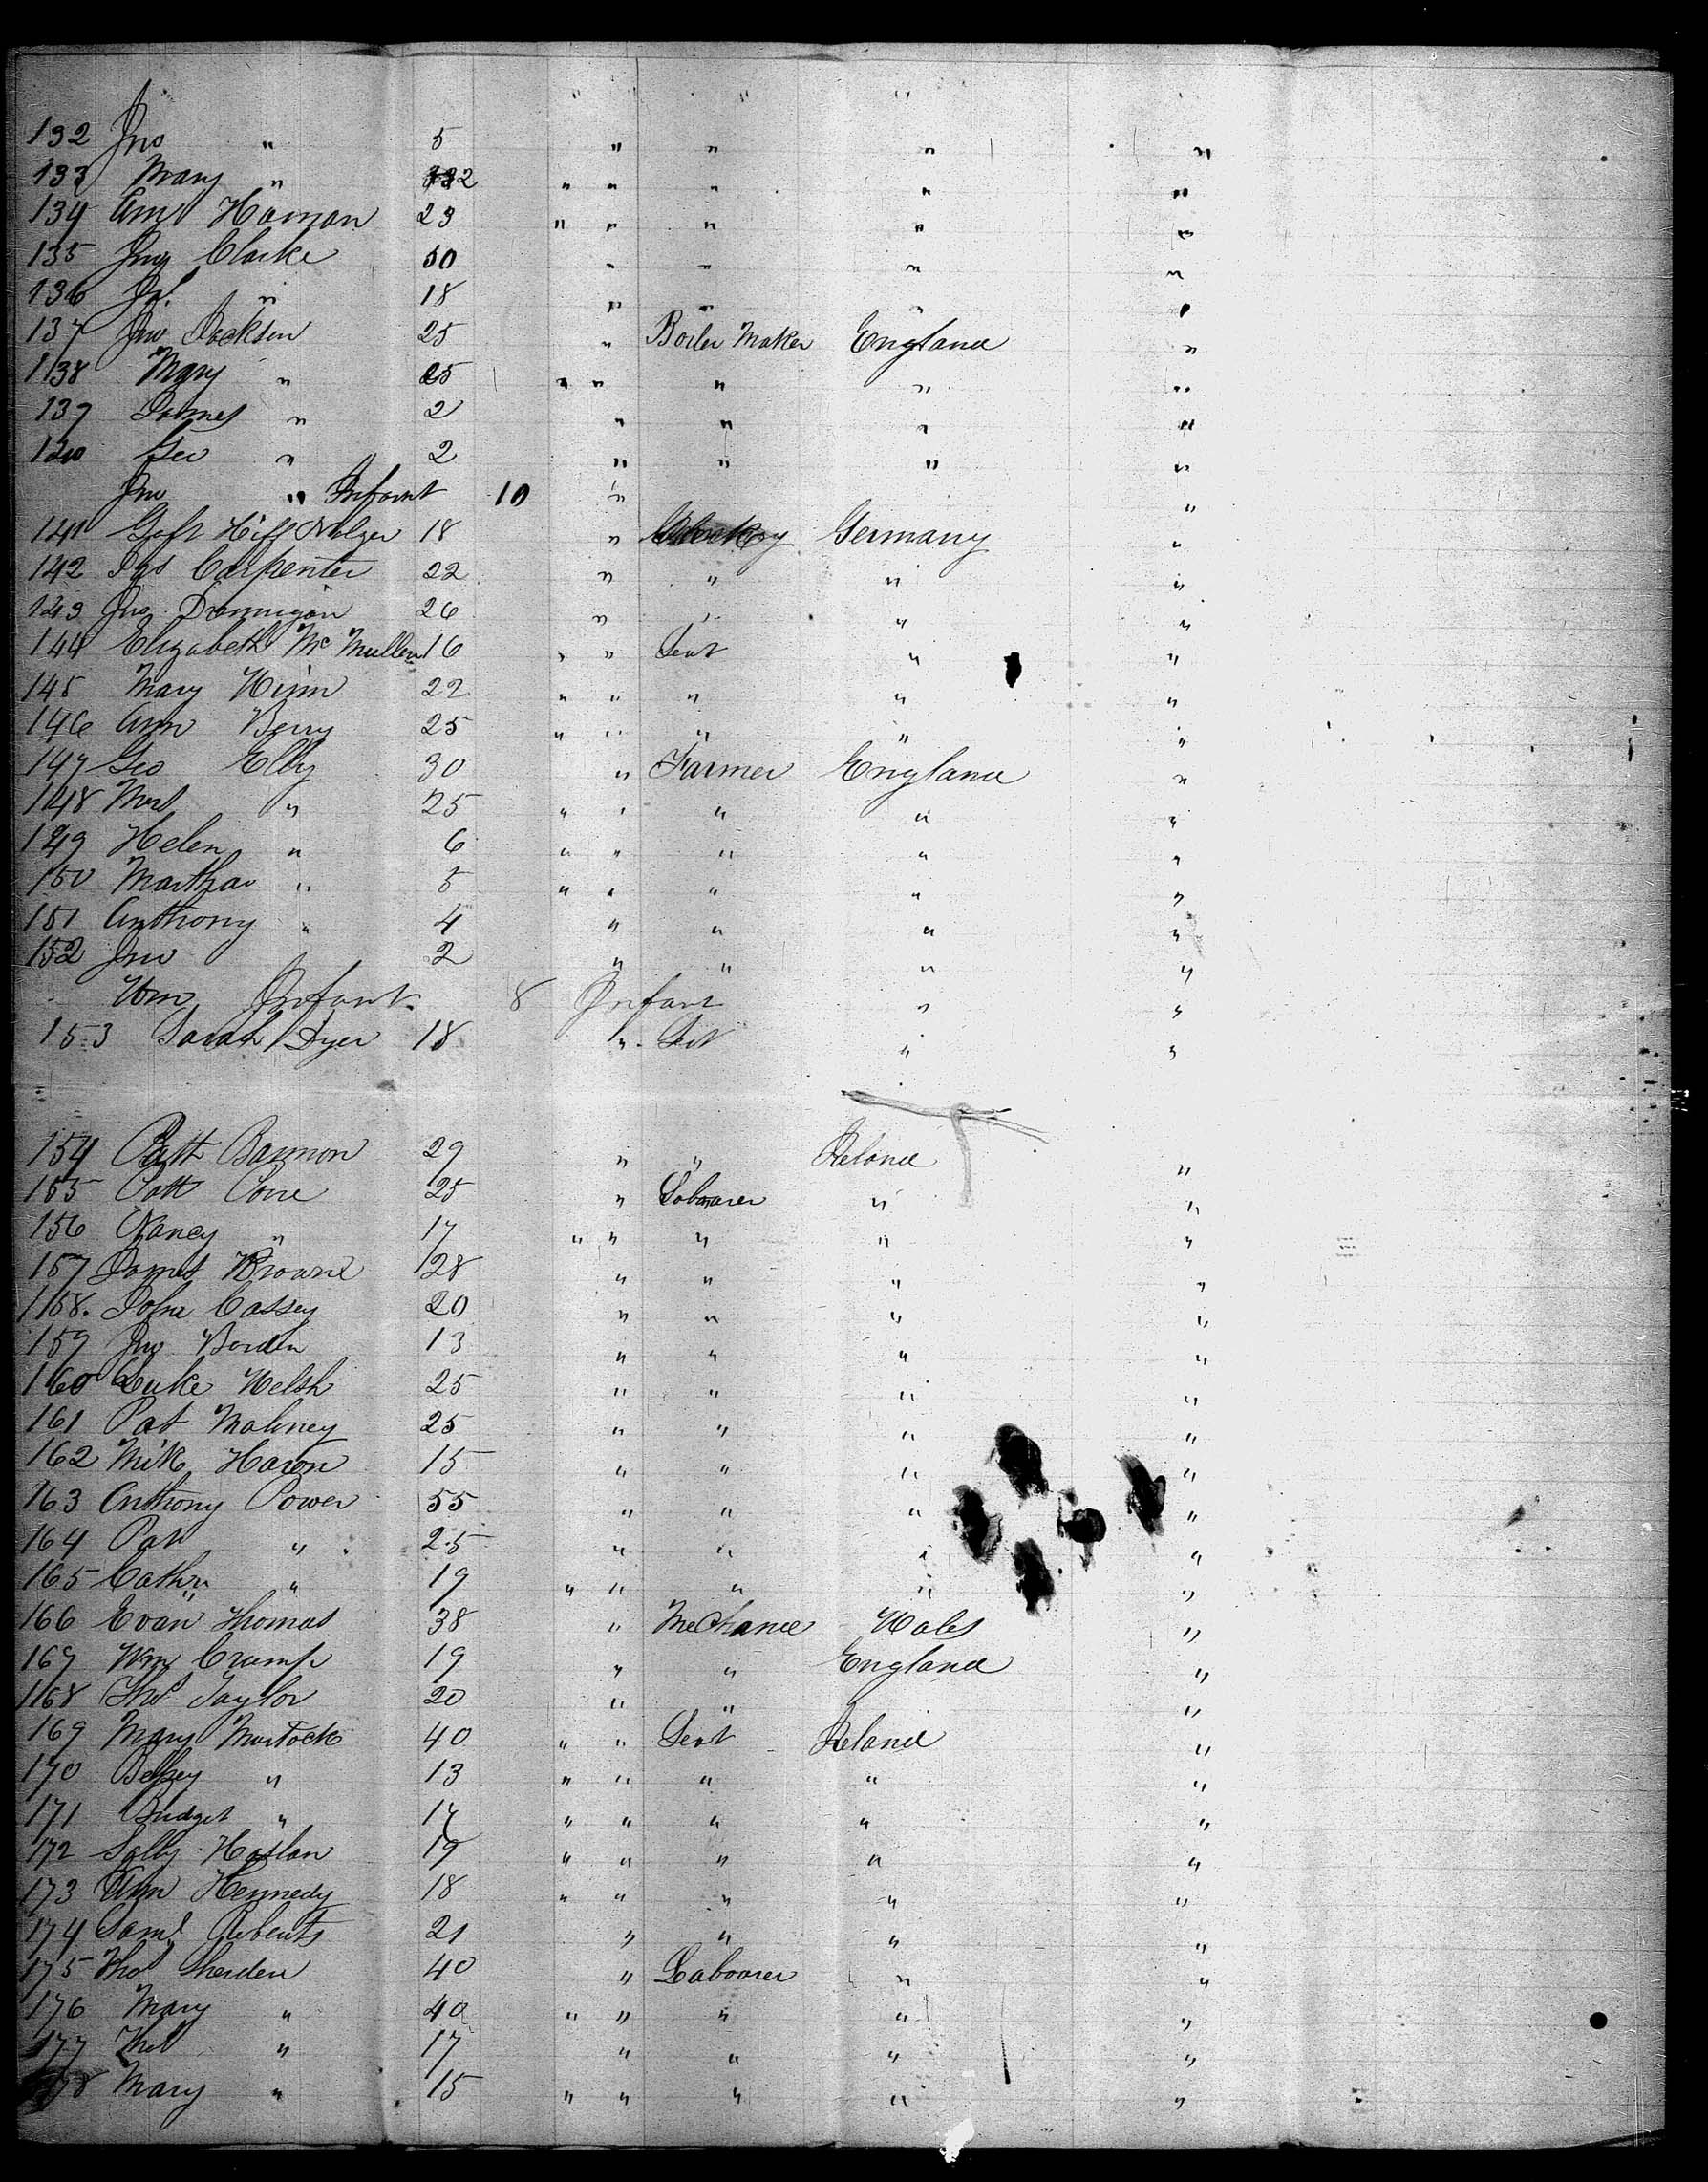 " " " "
132 Jno " 5 " " " "
133 Mary " 2 " " " " "
134 Ann Haman 23 " " " " "
135 Jno Clarke 50 " " " "
136 Js. " 18 " " " "
137 Jno Jackson 25 " Boiler Maker England "
138 Mary " 25 " " " " "
139 James " 2 " " " "
140 Geo " 2 " " " "
Jno " Infant 10 " "
141 18 " Germany "
142 Jas Carpenter 22 " " " "
143 Jno. Drannigan 26 " " " "
144 Elizabeth McMullen 16 " " Sevt " "
145 Mary 22 " " " " "
146 Ann Berry 25 " " " " "
147 Geo Elby 30 " Farmer England "
148 Mrs " 25 " " " " "
149 Helen " 6 " " " " "
150 Martha " 5 " " " " "
151 Anthony " 4 " " " "
152 Jno 2 " " " "
Wm Infant 8 Infant " "
153 Sarah Dyer 18 " Sevt " "
154 Patt Bannon 29 " " Ireland "
155 Patt Cone 25 " Labourer " "
156 Nancy " 17 " " " " "
157 James Browne 28 " " " "
158. John Cassey 20 " " " "
159 Jno Borden 13 " " " "
160 Luke Welsh 25 " " " "
161 Pat Mahney 25 " " " "
162 Mik Haron 15 " " " "
163 Anthony Power 55 " " " "
164 Pat " 25 " " " "
165 Cathn " 19 " " " " "
166 Evan Thomas 38 " Mechanic Wales "
167 Wm Crump 19 " " England "
168 Thos Taylor 20 " " "
169 Mary Murtock 40 " " Sevt Ireland "
170 Betsey " 13 " " " " "
171 Bridget " 17 " " " " "
172 Sally Haslan 19 " " " " "
173 Ann Hennedy 18 " " " " "
174 Saml Roberts 21 " " " "
175 Thos Sherden 40 " Labourer " "
176 Mary " 40 " " " " "
177 Thos " 17 " " " "
178 Mary " 15 " " " " "